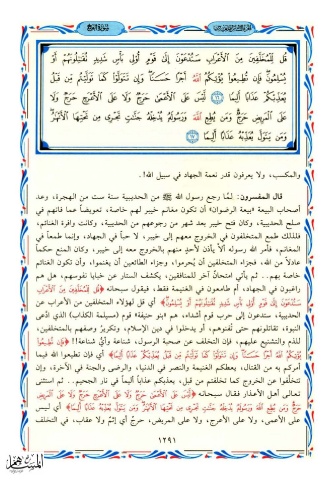 سورة الفتح
قُل لِّلْمُخَلَّفِينَ مِنَ الْأَعْرَابِ سَتُدْعَوْنَ إِلَىٰ قَوْمٍ أُولِي بَأْسٍ شَدِيدٍ تُقَاتِلُونَهُمْ أَوْ
يُسْلِمُونَ فَإِن تُطِيعُوا يُؤْتِكُمُ اللَّهُ أَجْرًا حَسَنًا وَإِن تَتَوَلَّوْا كَمَا تَوَلَّيْتُم مِّن قَبْلُ
يُعَذِّبْكُمْ عَذَابًا أَلِيمًا ١٦ لَّيْسَ عَلَى الْأَعْمَىٰ حَرَجٌ وَلَا عَلَى الْأَعْرَجِ حَرَجٌ وَلَا عَلَى
الْمَرِيضِ حَرَجٌ وَمَن يُطِعِ اللَّهَ وَرَسُولَهُ يُدْخِلْهُ جَنَّاتٍ تَجْرِي مِن تَحْتِهَا الْأَنْهَارُ
وَمَن يَتَوَلَّ يُعَذِّبْهُ عَذَابًا أَلِيمًا ١٧
والمكسب، ولا يعرفون قدر نعمة الجهاد في سبيل الله!.
قال المفسرون: لمّا رجع رسول الله ﷺ من الحديبية سنة ست من الهجرة، وعد
أصحاب البيعة «بيعة الرضوان» أن تكون مغانم خيبر لهم خاصة، تعويضاً عما فاتهم في
صلح الحديبية، وكان فتح خيبر بعد شهر من رجوعهم من الحديبية، وكانت وافرة الغنائم،
فلذلك طمع المتخلفون في الخروج معهم إلى خيبر، لا حباً في الجهاد، وإنما طمعاً في
المغانم، فأمر الله رسوله ألا يأذن لأحدٍ منهم بالخروج معه إلى خيبر، وكان المنع حكماً
عادلاً من الله، فجزاء المتخلفين أن يُحرموا، وجزاء الطائعين أن يغنموا، وأن تكون الغنائم
خاصة بهم.. ثم يأتي امتحانٌ آخر للمنافقين، يكشف الستار عن خبايا نفوسهم، هل هم
راغبون في الجهاد، أم طامعون في الغنيمة فقط، فيقول سبحانه ﴿قُل لِّلْمُخَلَّفِينَ مِنَ الْأَعْرَابِ
سَتُدْعَوْنَ إِلَىٰ قَوْمٍ أُولِي بَأْسٍ شَدِيدٍ تُقَاتِلُونَهُمْ أَوْ يُسْلِمُونَ﴾ أي قل لهؤلاء المتخلفين من الأعراب عن
الحديبية، ستدعون إلى حرب قومٍ أشداء، هم «بنو حنيفة» قوم (مسيلمة الكذاب) الذي ادَّعى
النبوة، تقاتلونهم حتى تُفنوهم، أو يدخلوا في دين الإسلام، وتكريرُ وصفهم بالمتخلفين،
للذم والتشنيع عليهم، فإن التخلف عن صحبة الرسول، شناعة وأيُّ شناعة!! ﴿فَإِن تُطِيعُوا
يُؤْتِكُمُ اللَّهُ أَجْرًا حَسَنًا وَإِن تَتَوَلَّوْا كَمَا تَوَلَّيْتُم مِّن قَبْلُ يُعَذِّبْكُمْ عَذَابًا أَلِيمًا﴾ أي فإن تطيعوا الله فيما
أمركم به من القتال، يعطكم الغنيمة والنصر في الدنيا، والرضى والجنة في الآخرة، وإن
تتخلَّفوا عن الخروج كما تخلفتم من قبل، يعذبكم عذاباً أليماً في نار الجحيم.. ثم استثنى
تعالى أهل الأعذار فقال سبحانه ﴿لَّيْسَ عَلَى الْأَعْمَىٰ حَرَجٌ وَلَا عَلَى الْأَعْرَجِ حَرَجٌ وَلَا عَلَى الْمَرِيضِ
حَرَجٌ وَمَن يُطِعِ اللَّهَ وَرَسُولَهُ يُدْخِلْهُ جَنَّاتٍ تَجْرِي مِن تَحْتِهَا الْأَنْهَارُ وَمَن يَتَوَلَّ يُعَذِّبْهُ عَذَابًا أَلِيمًا﴾ أي ليس
على الأعمى، ولا على الأعرج، ولا على المريض، حرجٌ أي إثمٌ ولا عقاب، في التخلف
١٢٩١